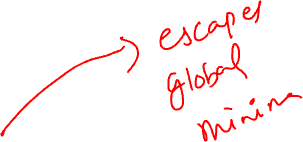 escapes
global
minima